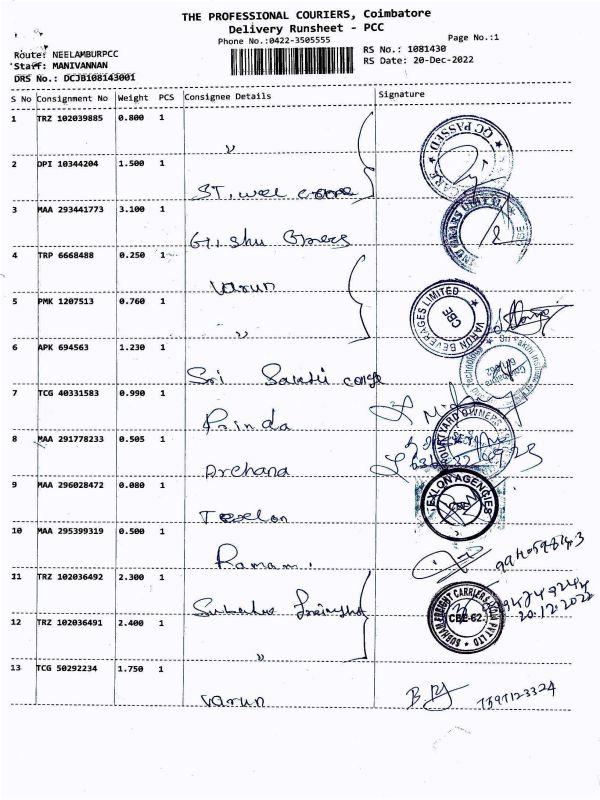 THE PROFESSIONAL COURIERS, Coimbatore
Delivery Runsheet - PCC
Phone No.:0422-3505555
Page No.:1
Route: NEELAMBURPCC
RS No.: 1081430
Staff: MANIVANNAN
RS Date: 20-Dec-2022
DRS No.: DCJB108143001
S No Consignment No Weight PCS Consignee Details Signature
1 TRZ 102039885 0.800 1
"
QC PASSED
2 DPI 10344204 1.500 1
ST.
3 MAA 293441773 3.100 1
4 TRP 6668488 0.250 1
Varun
VARUN BEVERAGES LIMITED
CBE
5 PMK 1207513 0.760 1
"
6 APK 694563 1.230 1
Sri Sakthi college
7 TCG 40331583 0.990 1
Prinda
8 MAA 291778233 0.505 1
Archana
9 MAA 296028472 0.080 1
TEXLON AGENCIES
Texlon
10 MAA 295399319 0.500 1
Ramani
11 TRZ 102036492 2.300 1
SUBHAM FREIGHT CARRIERS PVT LTD
CBE-62.
20.12.2022
12 TRZ 102036491 2.400 1
"
13 TCG 50292234 1.750 1
Varun
7597123324